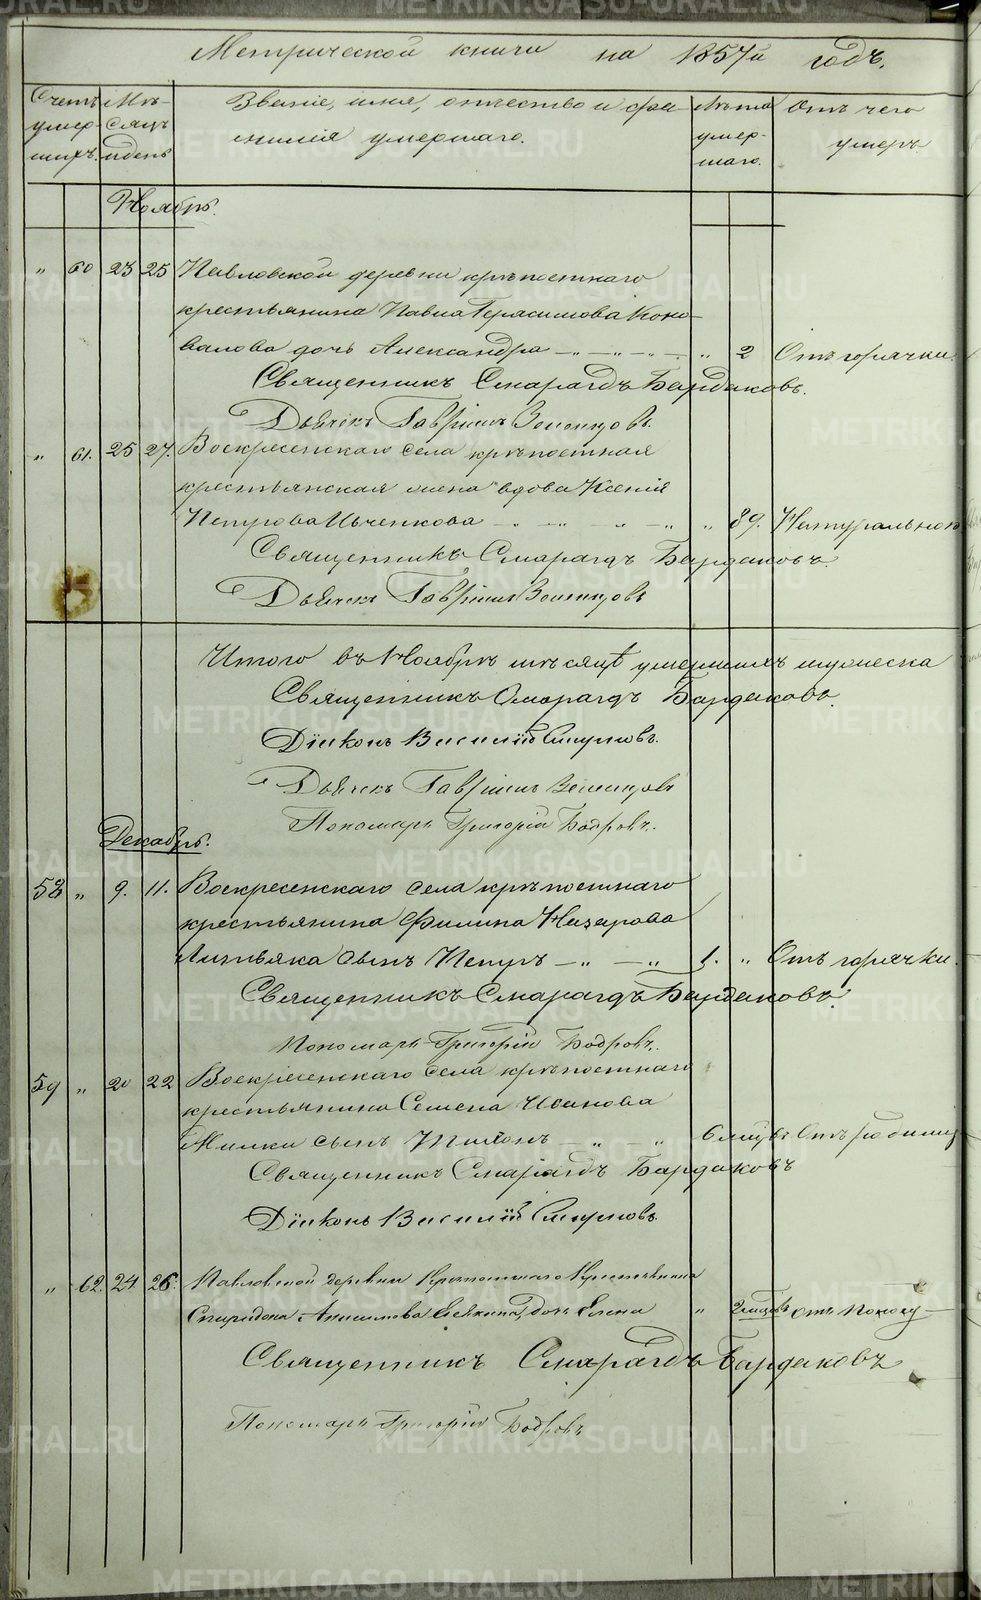 Метрической книги на 1857й годъ.
Счетъ умершихъ. Мѣсяцъ и день Званіе, имя, отчество и фамилія умершаго. Лѣта умершаго. Отъ чего умеръ.
Ноябрь.
„ 60 23 25 Павловской деревни крѣпостнаго
крестьянина Павла Герасимова Коно-
валова дочь Александра — „ — „ — „ 2 Отъ горячки.
Священникъ Смарагдъ Бардаковъ.
Дьячекъ Гавріилъ
„ 61. 25 27. Воскресенскаго села крѣпостная
крестьянская жена вдова Ксенія
Петрова — „ — „ — „ „ 89. Натурально
Священникъ Смарагдъ Бардаковъ.
Дьячекъ Гавріилъ
Итого въ Ноябрѣ мѣсяцѣ умершихъ мужеска
Священникъ Смарагдъ Бардаковъ.
Діаконъ Василій Смирновъ.
Дьячекъ Гавріилъ
Пономарь Григорій Бодровъ.
Декабрь.
58 „ 9. 11. Воскресенскаго села крѣпостнаго
крестьянина Филипа Назарова
Литвяка сынъ Петръ — „ — „ 1. „ Отъ горячки.
Священникъ Смарагдъ Бардаковъ.
Пономарь Григорій Бодровъ.
59 „ 20 22 Воскресенскаго села крѣпостнаго
крестьянина Семена Иванова
сынъ — „ — „ 6 мцвъ Отъ родимц
Священникъ Смарагдъ Бардаковъ
Діаконъ Василій Смирновъ.
„ 62. 24 26. Павловской деревни Крѣпостнаго Крестьянина
Спиридона Анисимова дочь Елена „ 2 мцвъ отъ поносу
Священникъ Смарагдъ Бардаковъ
Пономарь Григорій Бодровъ
METRIKI.GASO-URAL.RU